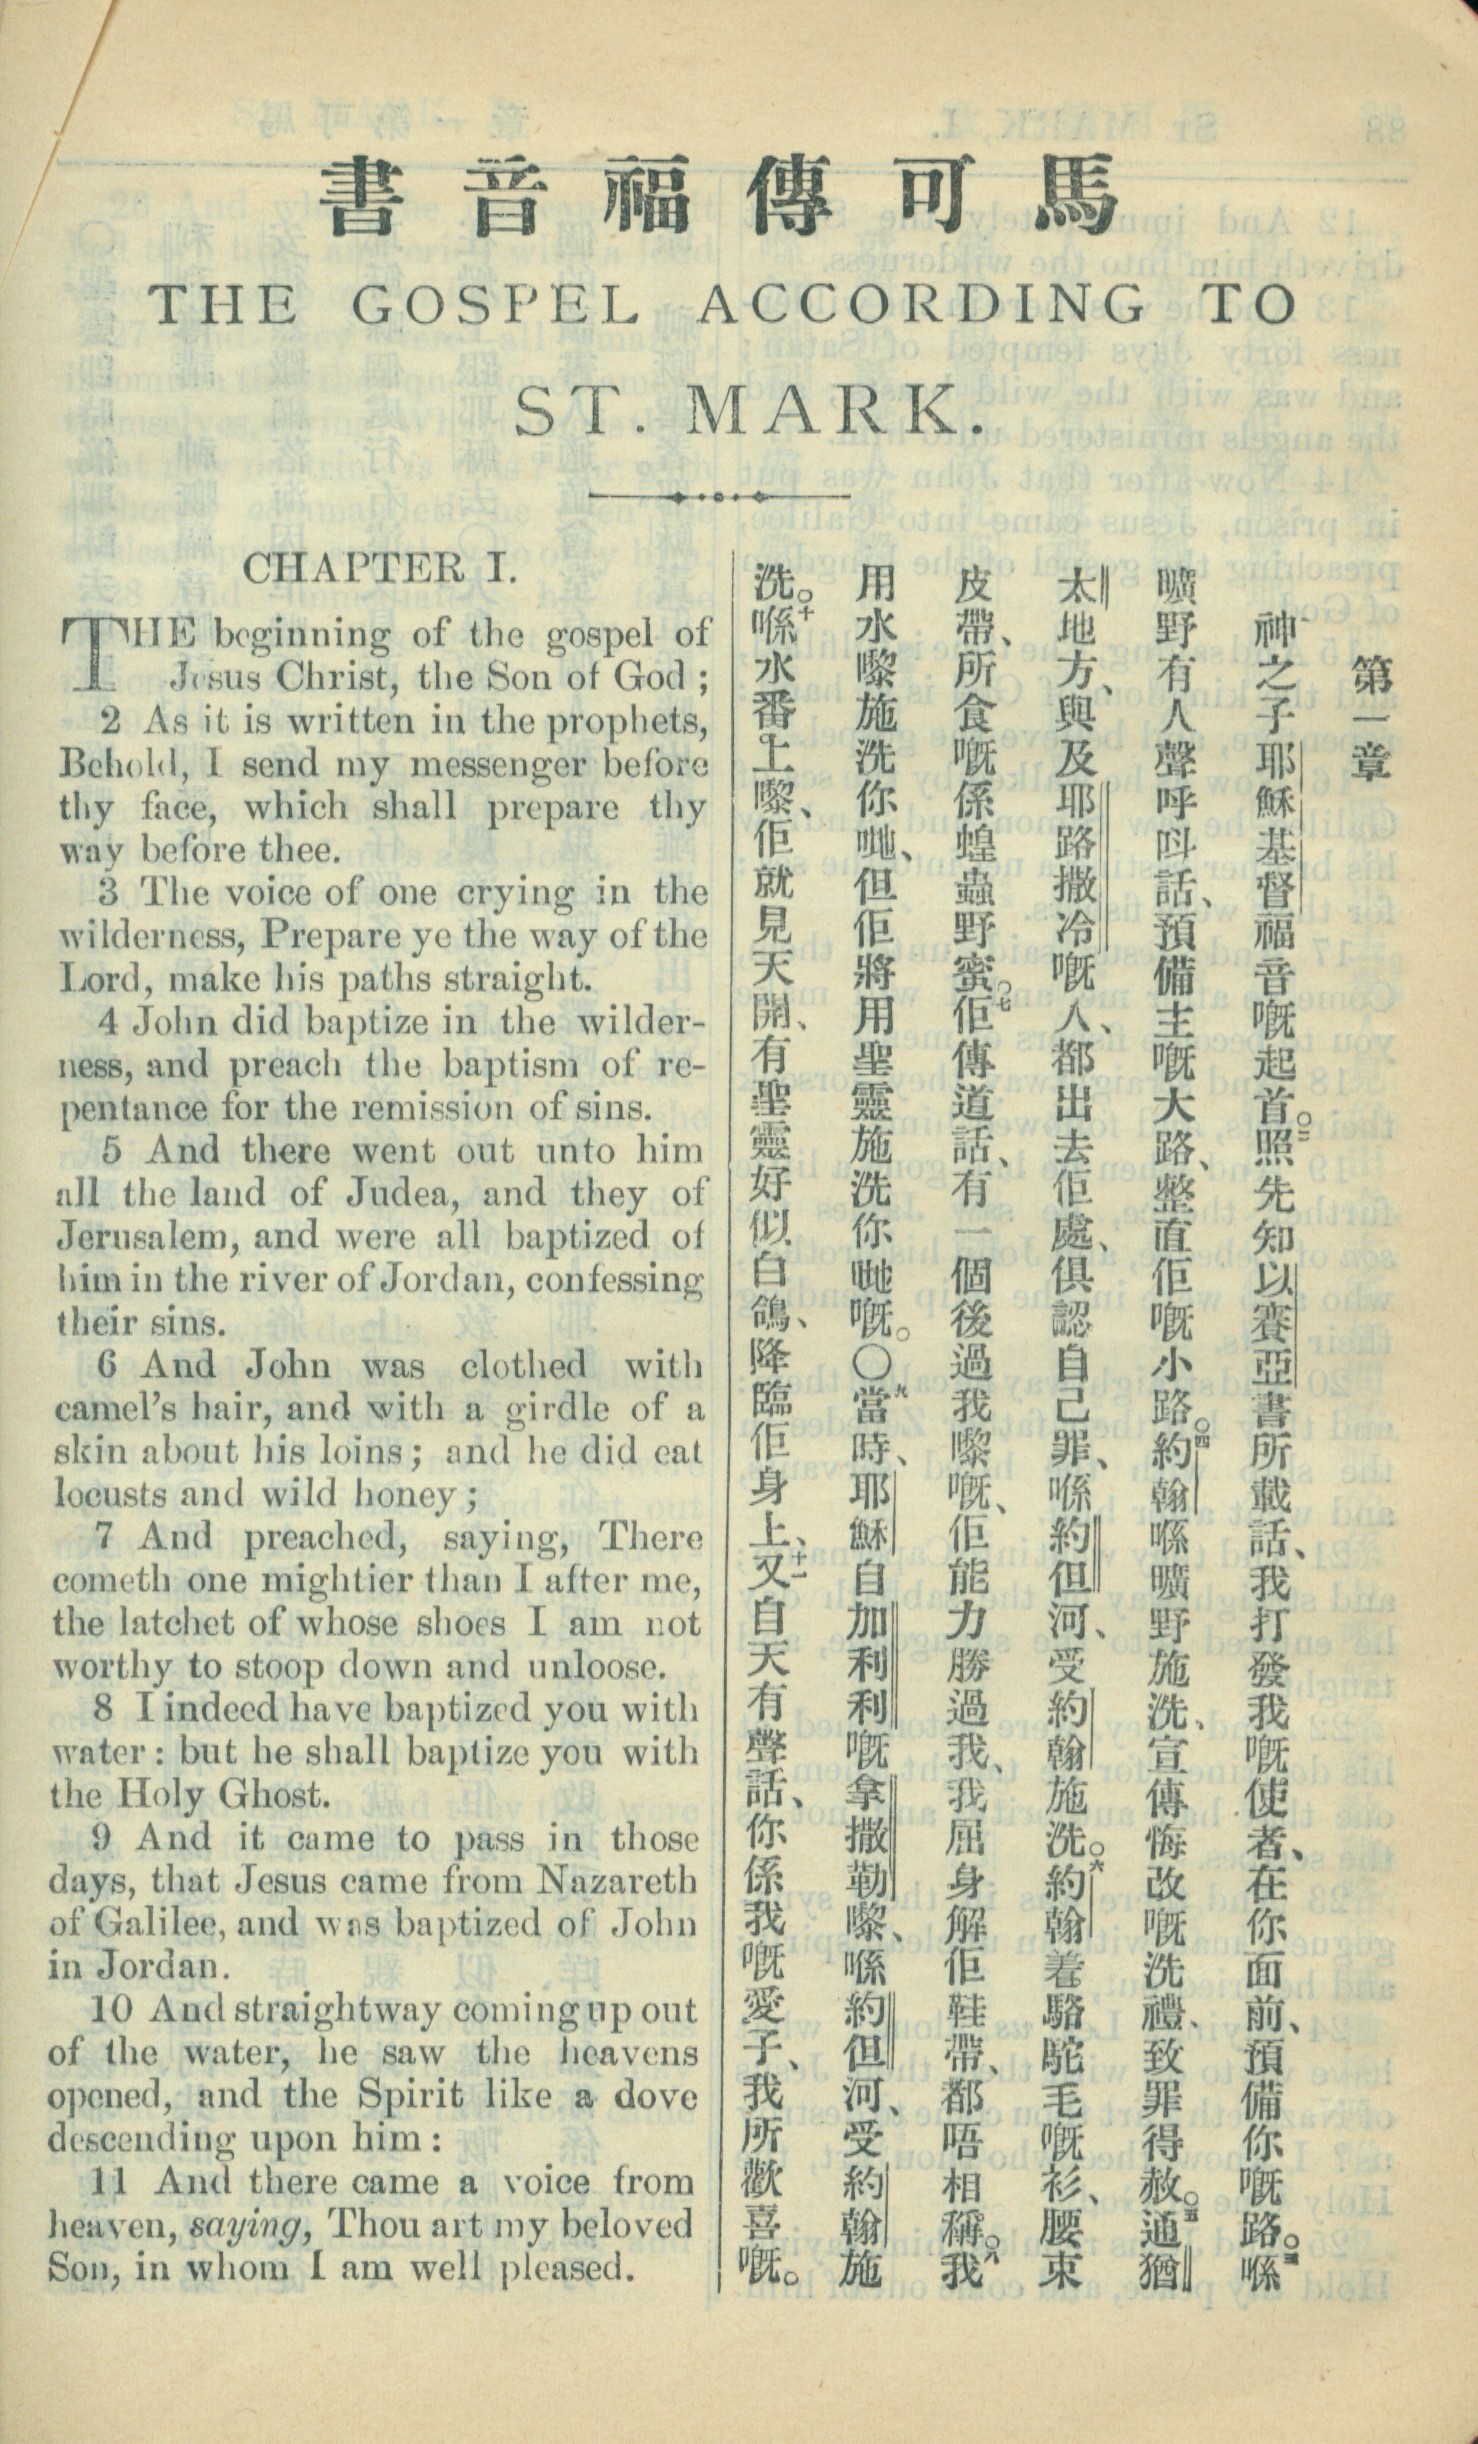 馬可傳福音書
THE GOSPEL ACCORDING TO
ST. MARK.
CHAPTER I.
THE beginning of the gospel of
Jesus Christ, the Son of God ;
2 As it is written in the prophets,
Behold, I send my messenger before
thy face, which shall prepare thy
way before thee.
3 The voice of one crying in the
wilderness, Prepare ye the way of the
Lord, make his paths straight.
4 John did baptize in the wilder-
ness, and preach the baptism of re-
pentance for the remission of sins.
5 And there went out unto him
all the land of Judea, and they of
Jerusalem, and were all baptized of
him in the river of Jordan, confessing
their sins.
6 And John was clothed with
camel's hair, and with a girdle of a
skin about his loins ; and he did eat
locusts and wild honey ;
7 And preached, saying, There
cometh one mightier than I after me,
the latchet of whose shoes I am not
worthy to stoop down and unloose.
8 I indeed have baptized you with
water : but he shall baptize you with
the Holy Ghost.
9 And it came to pass in those
days, that Jesus came from Nazareth
of Galilee, and was baptized of John
in Jordan.
10 And straightway coming up out
of the water, he saw the heavens
opened, and the Spirit like a dove
descending upon him :
11 And there came a voice from
heaven, saying, Thou art my beloved
Son, in whom I am well pleased.
第一章
神之子耶穌基督福音嘅起首。二照先知以賽亞書所載話、我打發我嘅使者、在你面前、預備你嘅路。三喺
曠野有人聲呼呌話、預備主嘅大路、整直佢嘅小路。四約翰喺曠野施洗、宣傳悔改嘅洗禮、致罪得赦。五通猶
太地方、與及耶路撒冷嘅人、都出去佢處、俱認自己罪、喺約但河、受約翰施洗。六約翰着駱駝毛嘅衫、腰束
皮帶、所食嘅係蝗蟲野蜜。七佢傳道話、有一個後過我嚟嘅、佢能力勝過我、我屈身解佢鞋帶、都唔相稱。八我
用水嚟施洗你哋、但佢將用聖靈施洗你哋嘅。〇九當時、耶穌自加利利嘅拿撒勒嚟、喺約但河、受約翰施
洗。十喺水番上嚟、佢就見天開、有聖靈好似白鴿、降臨佢身上、十一又自天有聲話、你係我嘅愛子、我所歡喜嘅。